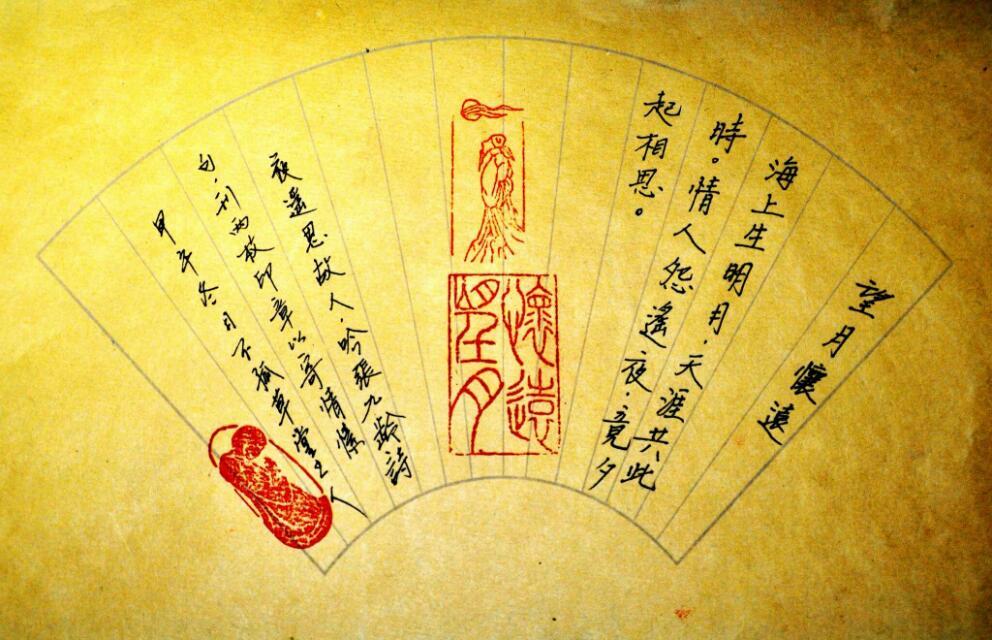 望月懷遠
海上生明月，天涯共此
時。情人怨遙夜，竟夕
起相思。
懷遠
望月
夜遥思故人，吟張九齡詩
句，刊两枚印章以寄情愫
甲午冬日不孤草堂主人